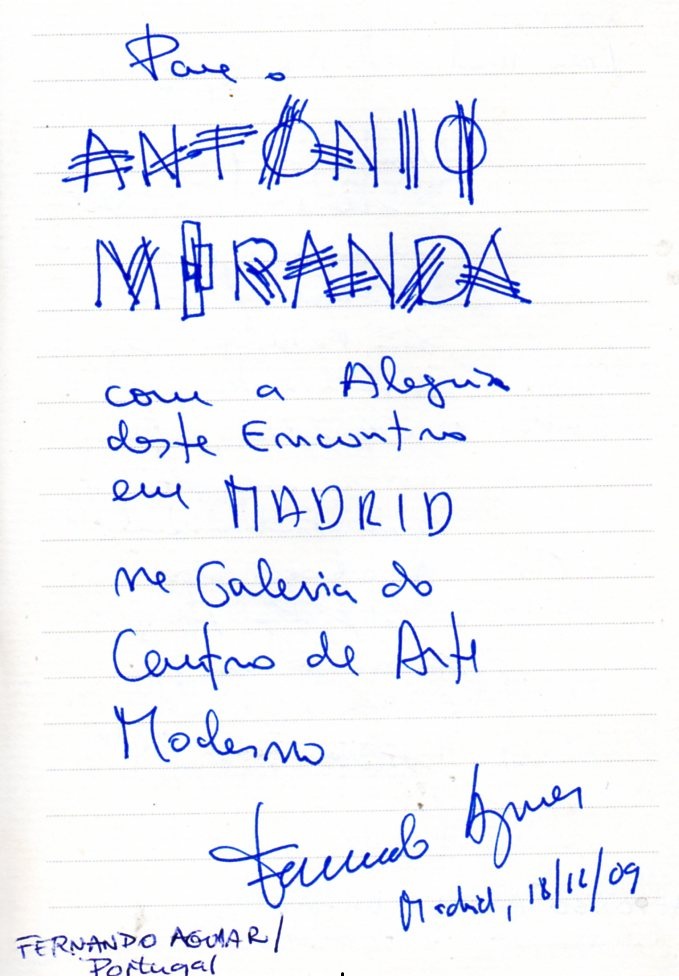 Para o
ANTÓNIO
MIRANDA
com a Alegria
deste Encontro
em MADRID
na Galeria do
Centro de Arte
Moderno
Fernando Aguiar
Madrid, 18/12/09
FERNANDO AGUIAR /
Portugal